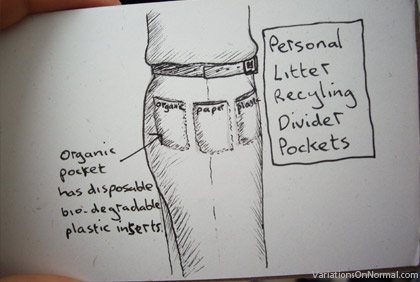 Personal
Litter
Recyling
Divider
Pockets
organic
paper
plastic
Organic
pocket
has disposable
bio-degradable
plastic inserts.
VariationsOnNormal.com